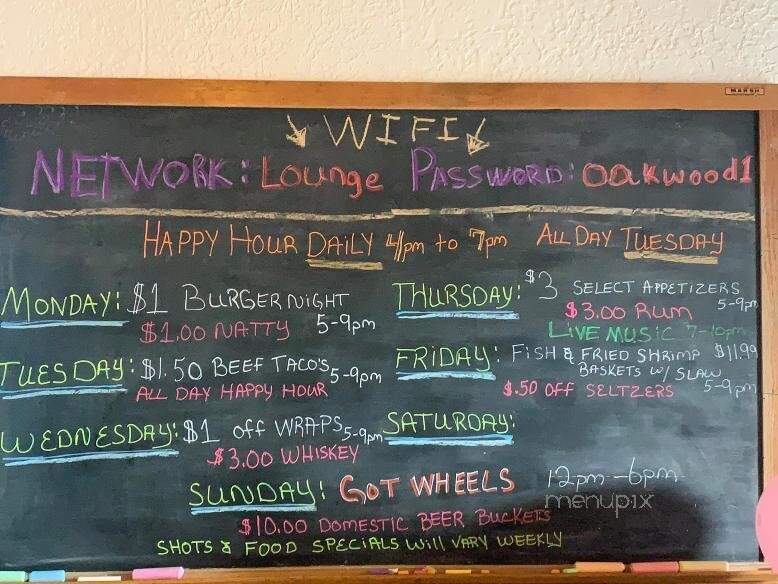 MARSH
WIFI
NETWORK: Lounge PASSWORD: oakwood1
HAPPY HOUR DAILY 4pm to 7pm ALL DAY TUESDAY
MONDAY: $1 BURGER NIGHT
$1.00 NATTY 5-9pm
TUESDAY: $1.50 BEEF TACO'S 5-9pm
ALL DAY HAPPY HOUR
WEDNESDAY: $1 off WRAPS 5-9pm
$3.00 WHISKEY
THURSDAY: $3 SELECT APPETIZERS
$3.00 Rum 5-9pm
LIVE MUSIC 7-10pm
FRIDAY: FISH & FRIED SHRIMP $11.99
BASKETS W/ SLAW
$.50 OFF SELTZERS 5-9pm
SATURDAY:
SUNDAY: GOT WHEELS 12pm-6pm
menupix
$10.00 DOMESTIC BEER BUCKETS
SHOTS & FOOD SPECIALS Will VARY WEEKLY